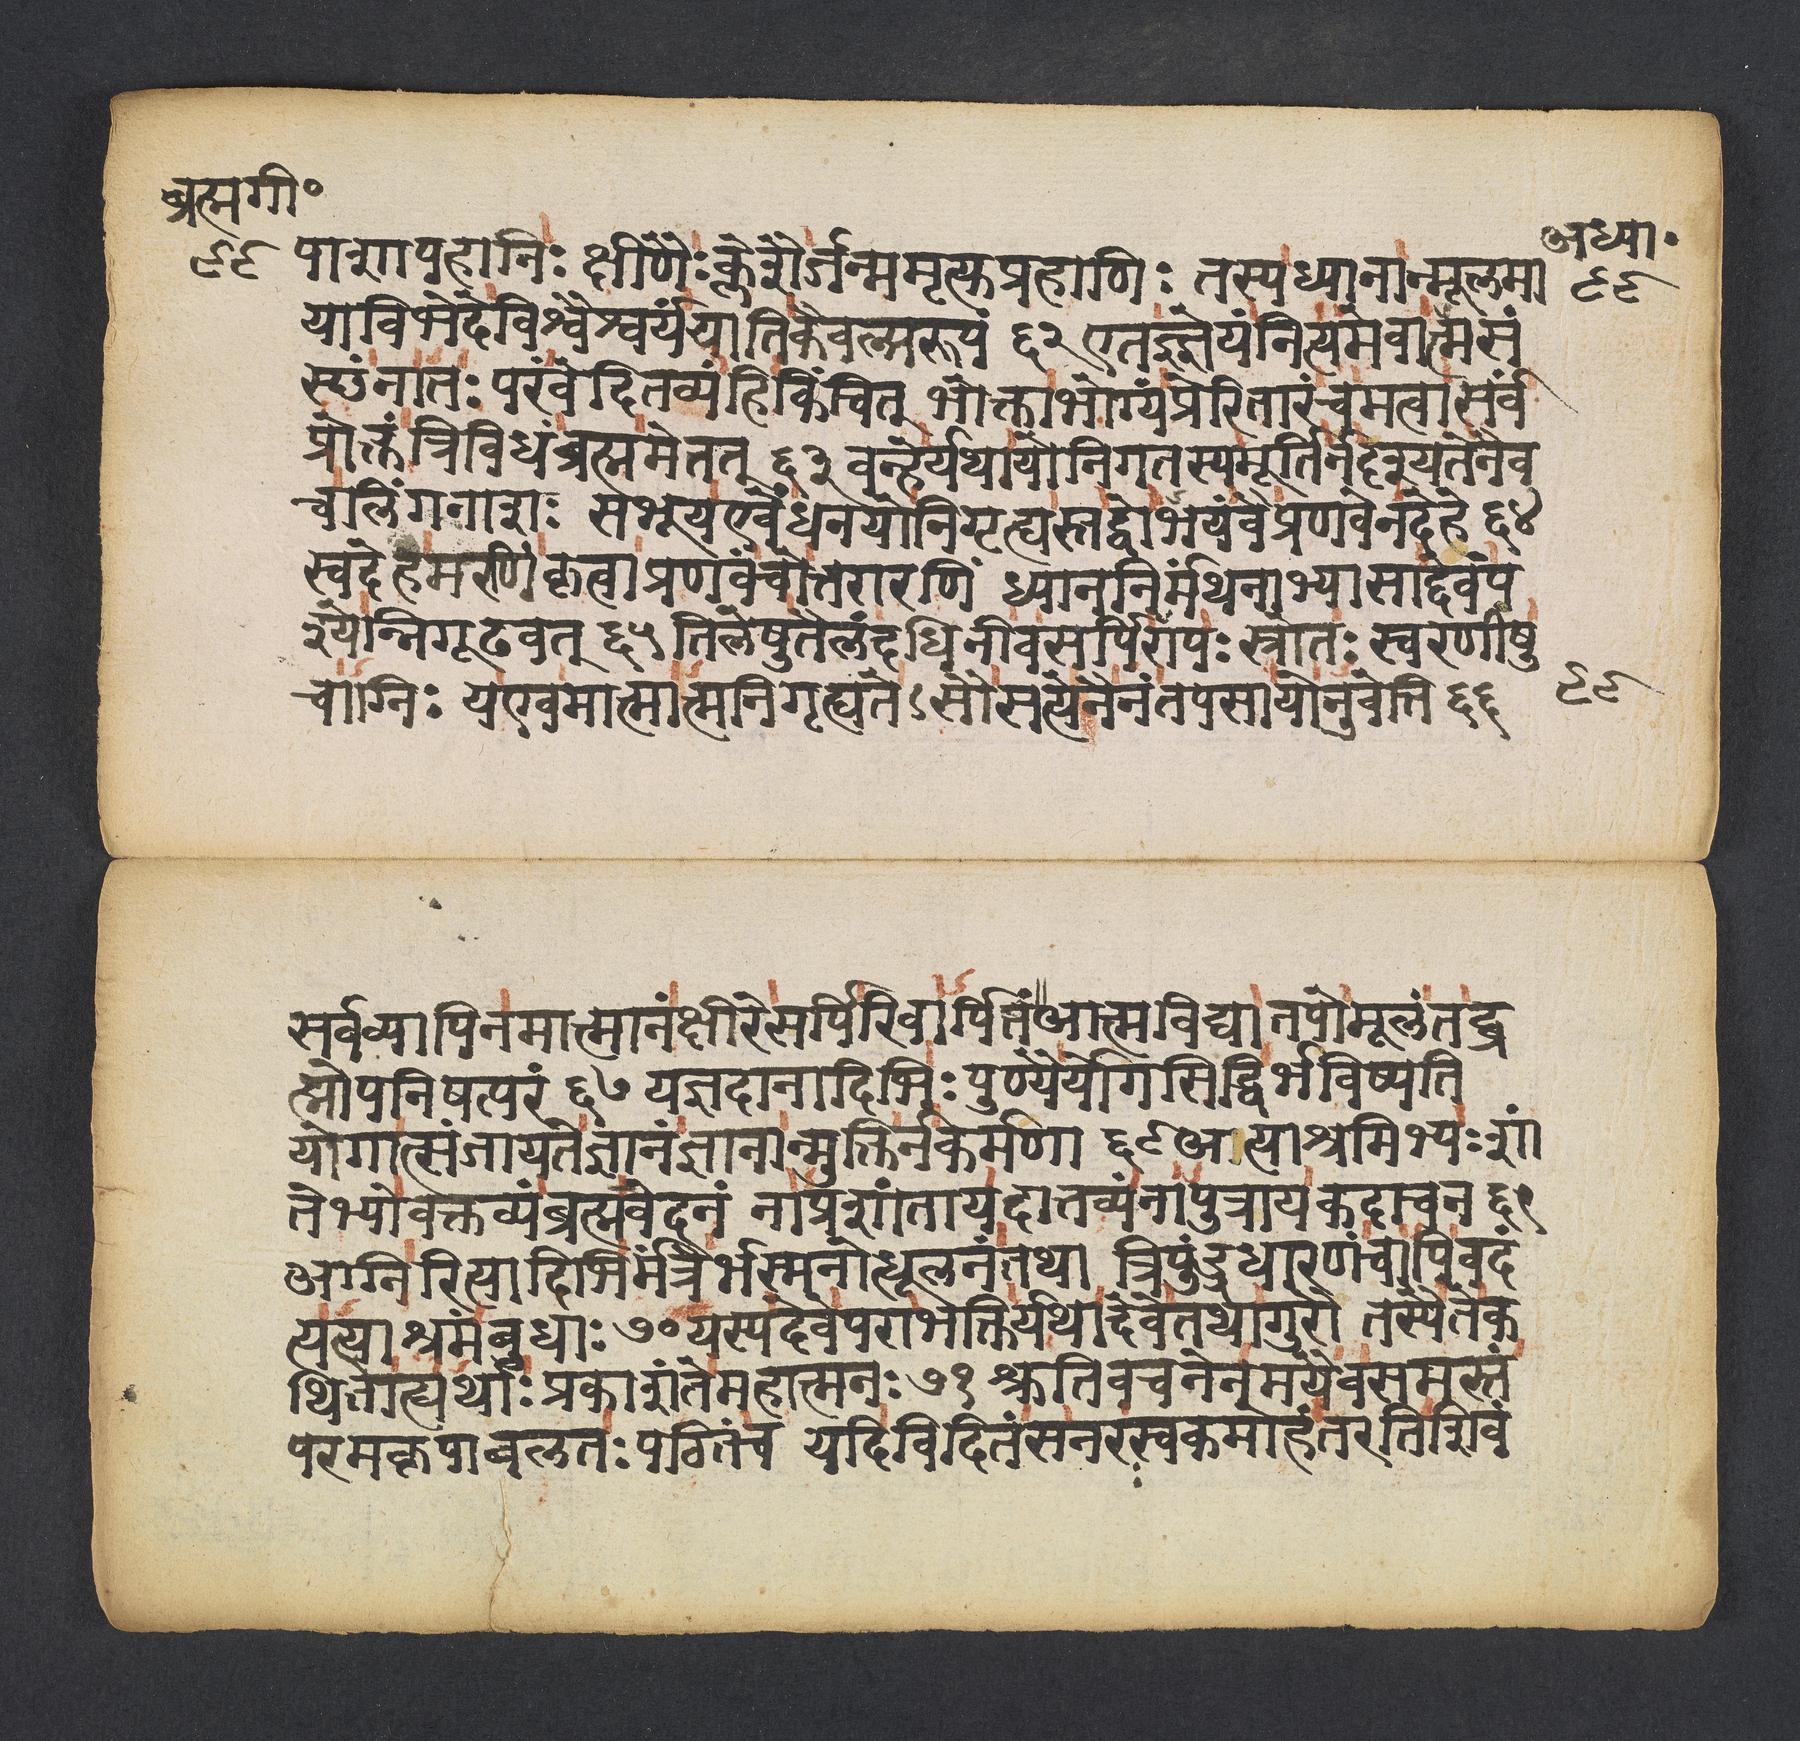 ब्रह्मगी॰
९९
अध्या॰
९९
पाशापहानिः क्षीणैः क्लेशैर्जन्ममृत्युप्रहाणिः तस्यध्यानान्मूलमा
याविभेदेविश्वैश्वर्ययातिकैवल्यरूपं ६२ एतज्ज्ञेयंनित्यमेवात्मसं
स्छंनातः परंवेदितव्यंहिकिंचित् भोक्ताभोग्यंप्रेरितारंचमत्वासर्वं
प्रोक्तंत्रिविधंब्रह्ममेतत् ६३ वन्हेर्यथायोनिगतस्यमूर्तिर्नदृश्यतेनैव
चलिंगनाशः सभूयएवेंधनयोनिगृह्यस्तद्वोभयंवैप्रणवेनदेहे ६४
स्वदेहमरणिंकृत्वाप्रणवंचोत्तरारणिं ध्याननिर्मथनाभ्यासाद्देवंप
श्येन्निगूढवत् ६५ तिलेषुतैलंदधिनीवसर्पिरापः स्त्रोतः स्वरणीषु
चाग्निः यएवमात्मात्मनिगृह्यतेऽसौसत्येनैनंतपसायोनुवेत्ति ६६
९९
सर्वव्यापिनमात्मानंक्षीरेसर्पिरिवार्पितं॥आत्मविद्यातपोमूलंतद्ब्र
ह्मोपनिषत्परं ६७ यज्ञदानादिभिः पुण्यैर्योगसिद्धिर्भविष्यति
योगात्संजायतेज्ञानंज्ञानान्मुक्तिर्नकर्मणा ६८अत्याश्रमिभ्यः शां
तेभ्योवक्तव्यंब्रह्मवेदनं नाप्रशांतायदातव्यंनापुत्रायकदाचन ६९
अग्निरित्यादिभिर्मंत्रैर्भस्मनोत्धूलनंतथा त्रिपुंड्रधारणंचापिवदं
त्यत्याश्रमंबुधाः ७०यस्यदेवेपराभक्तिर्यथादेवेतथागुरौ तस्यैतेक
थितात्द्यर्थाः प्रकाशंतेमहात्मनः ७१ श्रुतिवचनेनमयैवसमस्तं
परमकृपाबलतः पठितंच यदिविदितंसनरस्वकमोहंतरतिशिवं